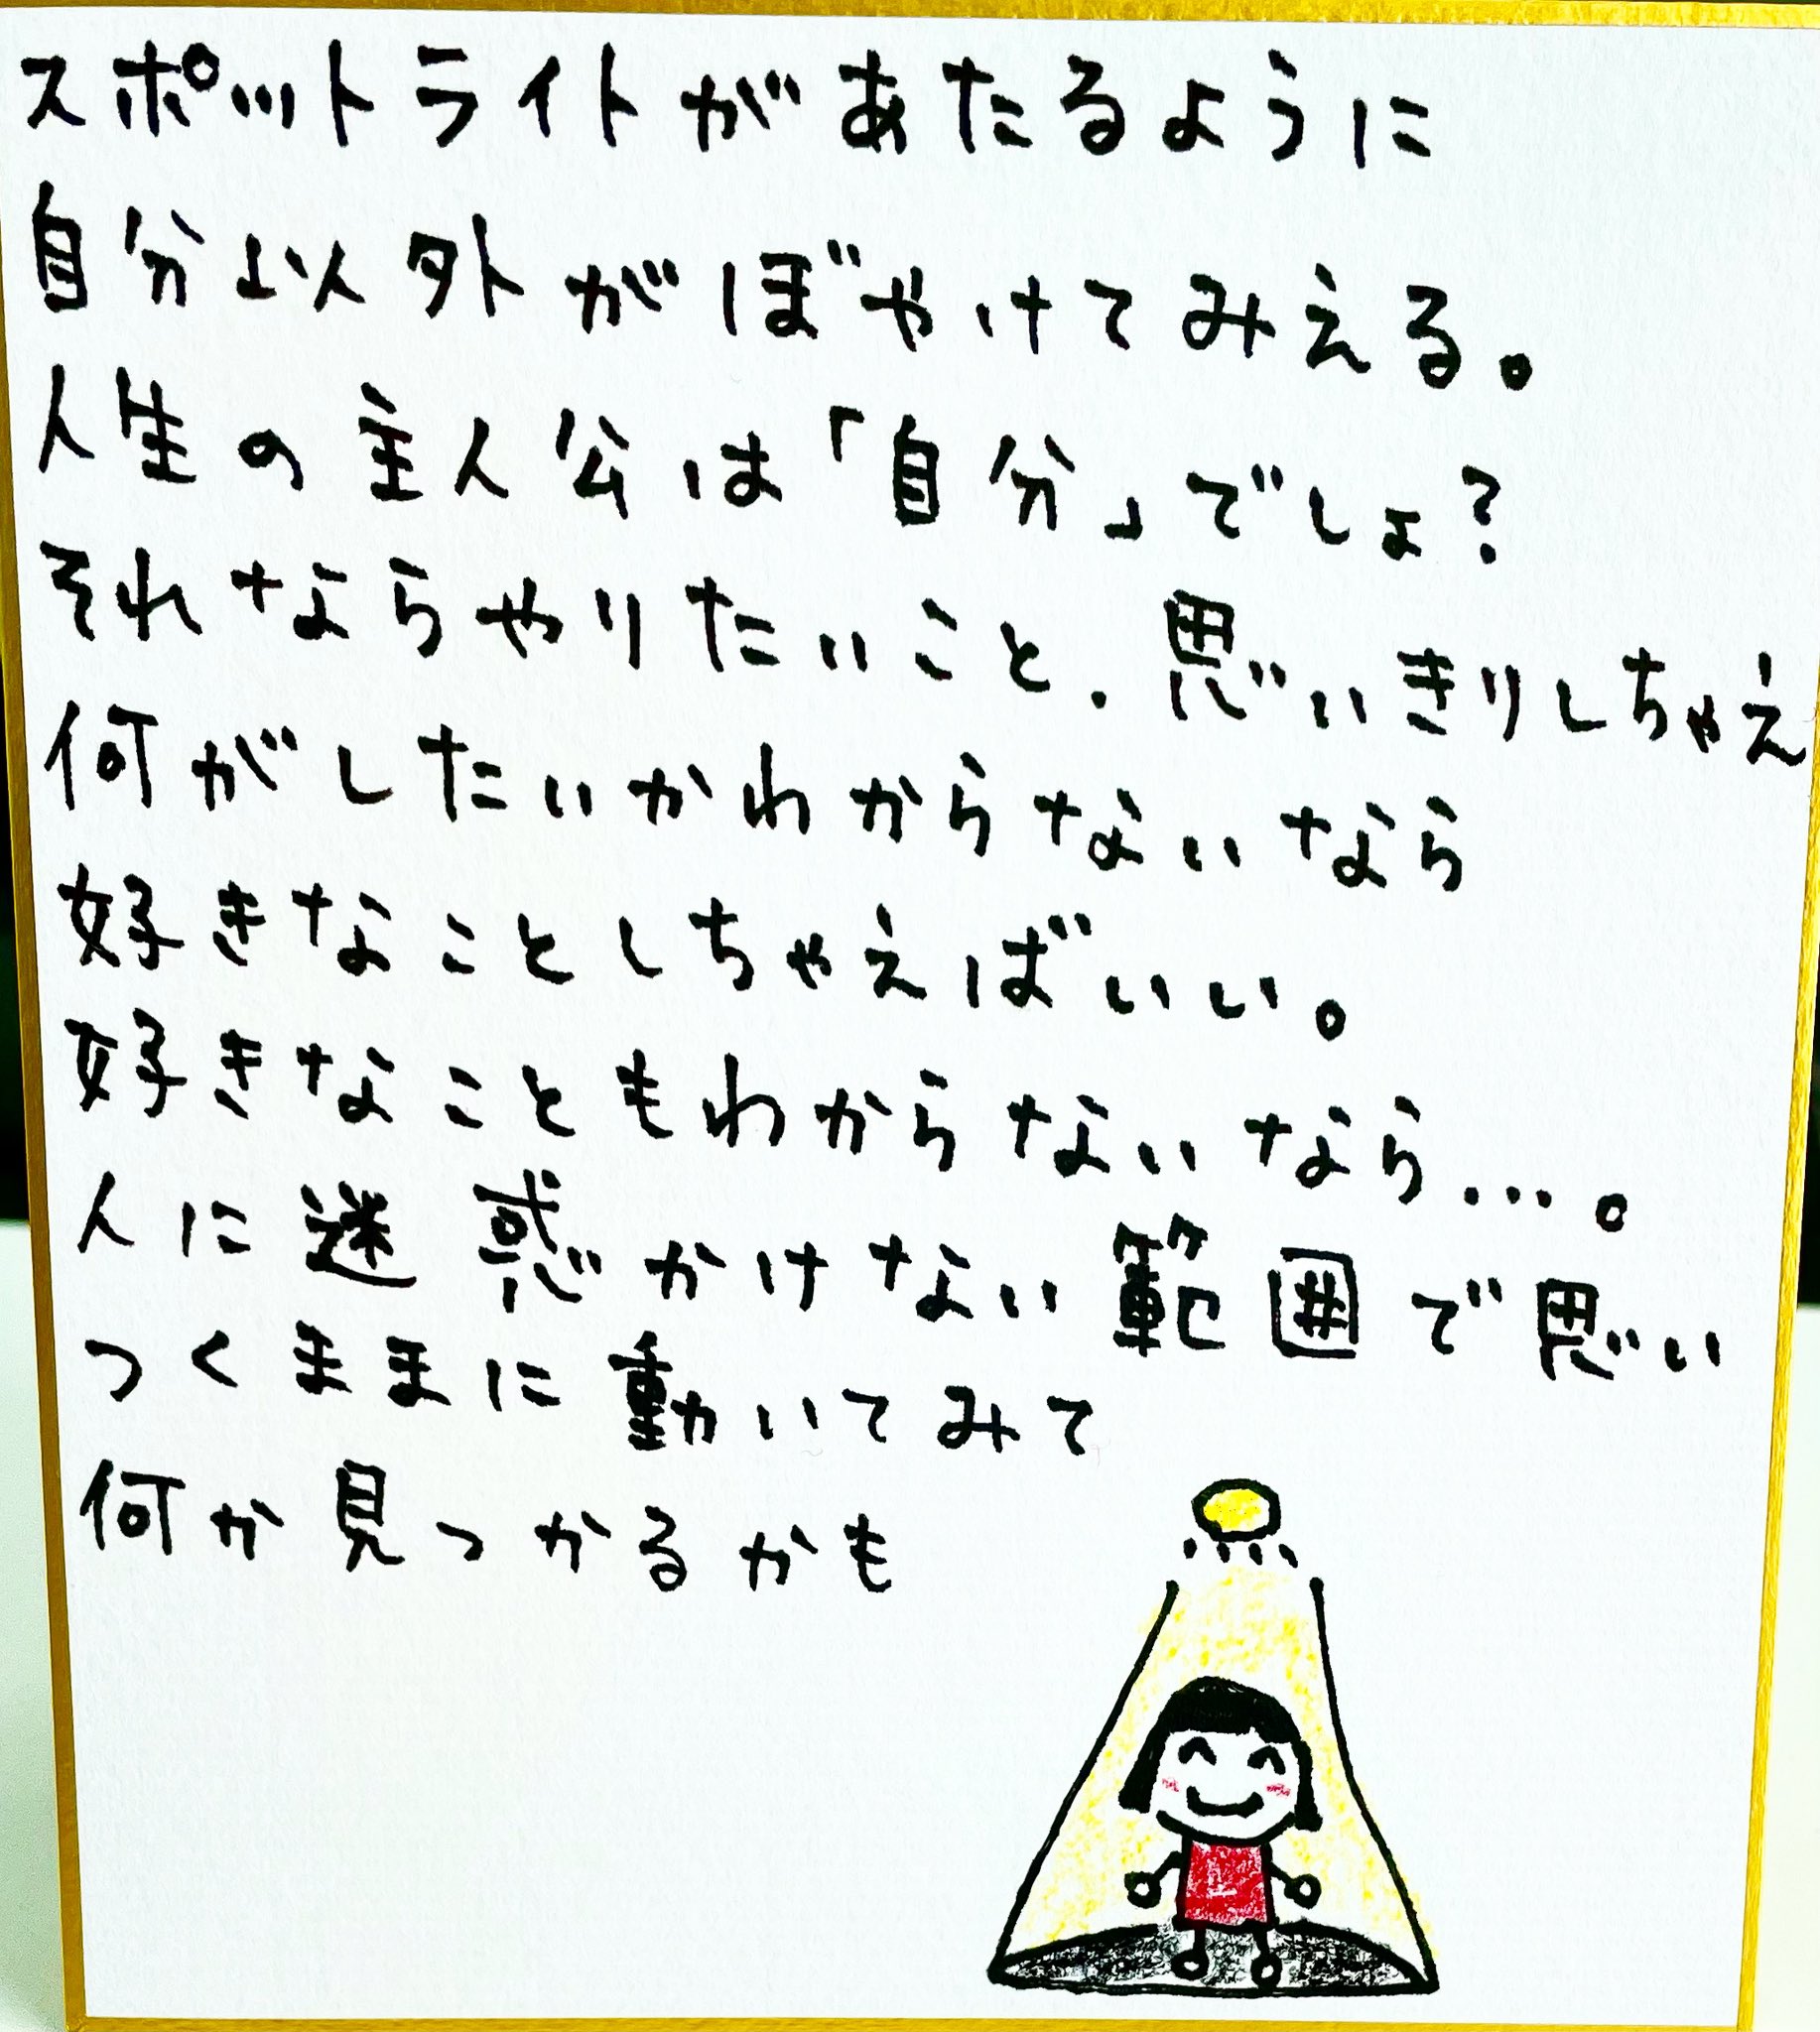 スポットライトがあたるように
自分以外がぼやけてみえる。
人生の主人公は「自分」でしょ?
それならやりたいこと、思いきりしちゃえ
何がしたいかわからないなら
好きなことしちゃえばいい。
好きなこともわからないなら…。
人に迷惑かけない範囲で思い
つくままに動いてみて
何か見つかるかも